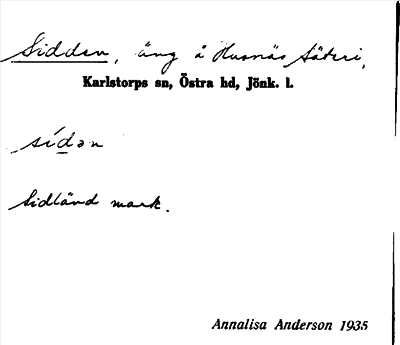 Sidden, äng å Husnäs säteri,
Karlstorps sn, Östra hd, Jönk. l.
sídən
Sidländ mark.
Annalisa Anderson 1935